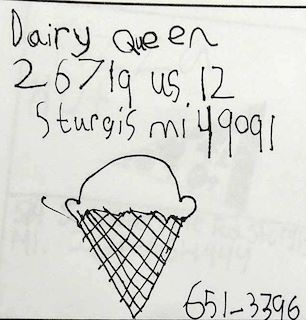 Dairy Queen
26719 us 12
Sturgis mi 49091
651-3396